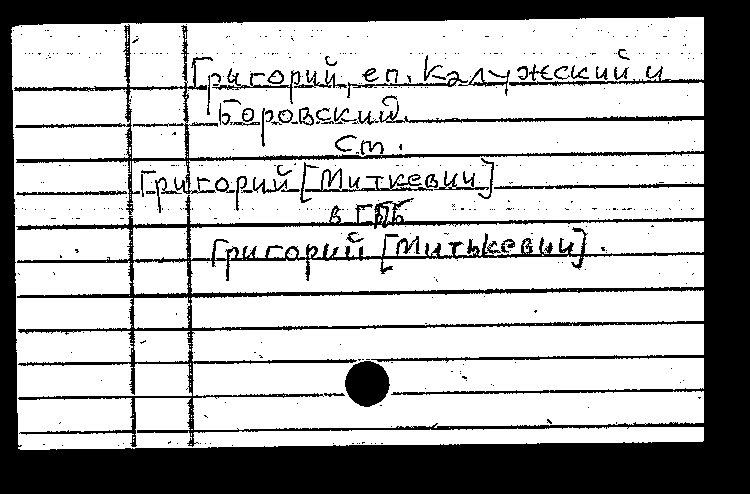 Григорий, еп. Калужский и
Боровский.
Ст.
Григорий [Миткевич]
в ГПБ
Григорий [Митькевич].